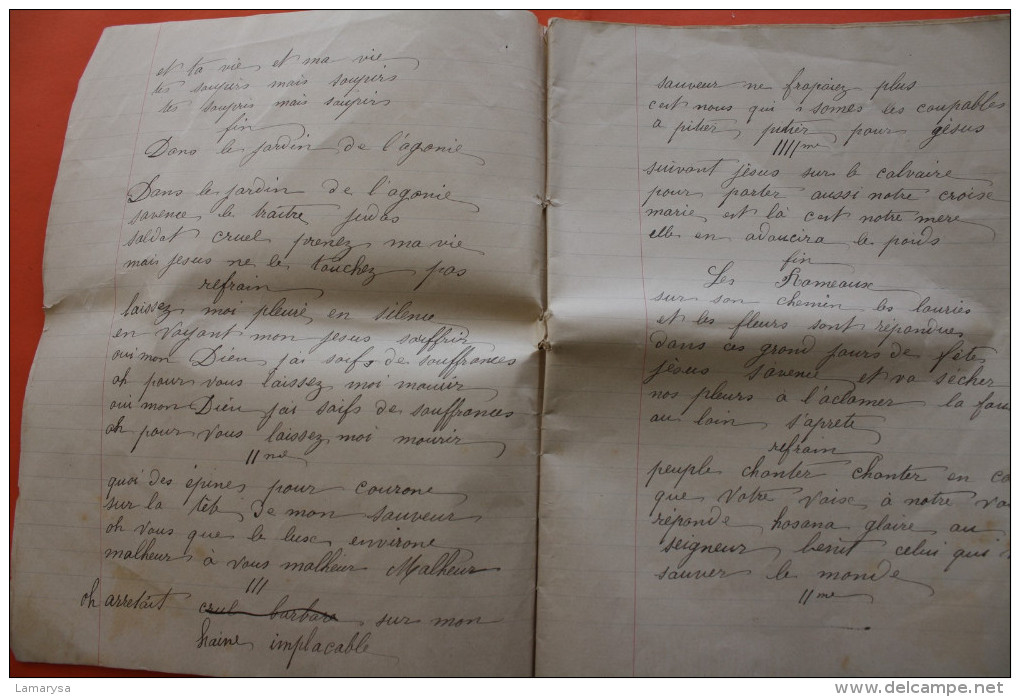 et ta vie et ma vie
tes soupirs mais soupirs
tes soupris mais soupirs
fin
Dans le jardin de l'agonie
Dans le jardin de l'agonie
savence le traître judas
soldat cruel prenez ma vie
mais jesus ne le touchez pas
refrain
laissez moi pleuré en silence
en voyant mon jesus souffrir
oui mon Dieu j'ai soifs de souffrances
oh pour vous laissez moi mourir
oui mon Dieu j'ai soifs de souffrances
oh pour vous laissez moi mourir
II me
quoi des épines pour courone
sur la tête de mon sauveur
oh vous que le luxe environe
malheur à vous malheur Malheur
III
oh arretait cruel barbare sur mon
haine implacable
sauveur ne frapaiez plus
cest nous qui somes les coupables
a pitier pitier pour jésus
IIII me
suivant jesus sur le calvaire
pour porter aussi notre croise
marie est là cest notre mere
elle en adoucira le poids
fin
Les Rameaux
sur son chemin les lauries
et les fleurs sont répondue
dans ces grand jours de fête
jèsus savence et va sècher
nos pleurs à l'aclamer la fou
au loin s'aprete
refrain
peuple chanter chanter en co
que votre vaise à notre vo
réponde hosana gloire au
seigneur benit celui qui
sauver le monde
II me
Lamarysa
www.delcampe.net